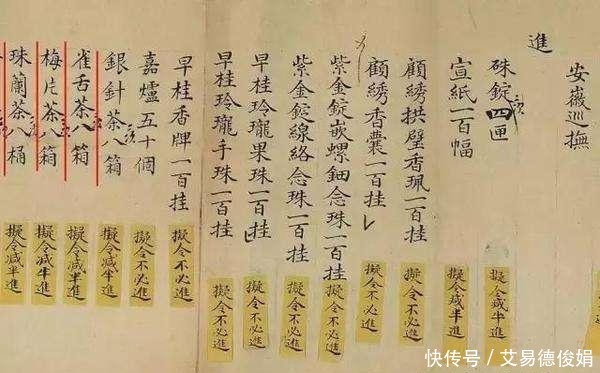 安徽巡撫
進
硃錠四匣
擬令減半進
宣紙一百幅
擬令減半進
顧繡拱璧香珮一百挂
擬令不必進
顧繡香囊一百挂
擬令不必進
紫金錠嵌螺鈿念珠一百挂
擬令不必進
紫金錠線絡念珠一百挂
擬令不必進
早桂玲瓏果珠一百挂
擬令不必進
早桂玲瓏手珠一百挂
擬令不必進
早桂香牌一百挂
擬令不必進
嘉爐五十個
擬令不必進
銀針茶八箱
擬令減半進
雀舌茶八箱
擬令減半進
梅片茶八箱
擬令減半進
珠蘭茶八桶
擬令減半進
快传号／艾易德俊娟